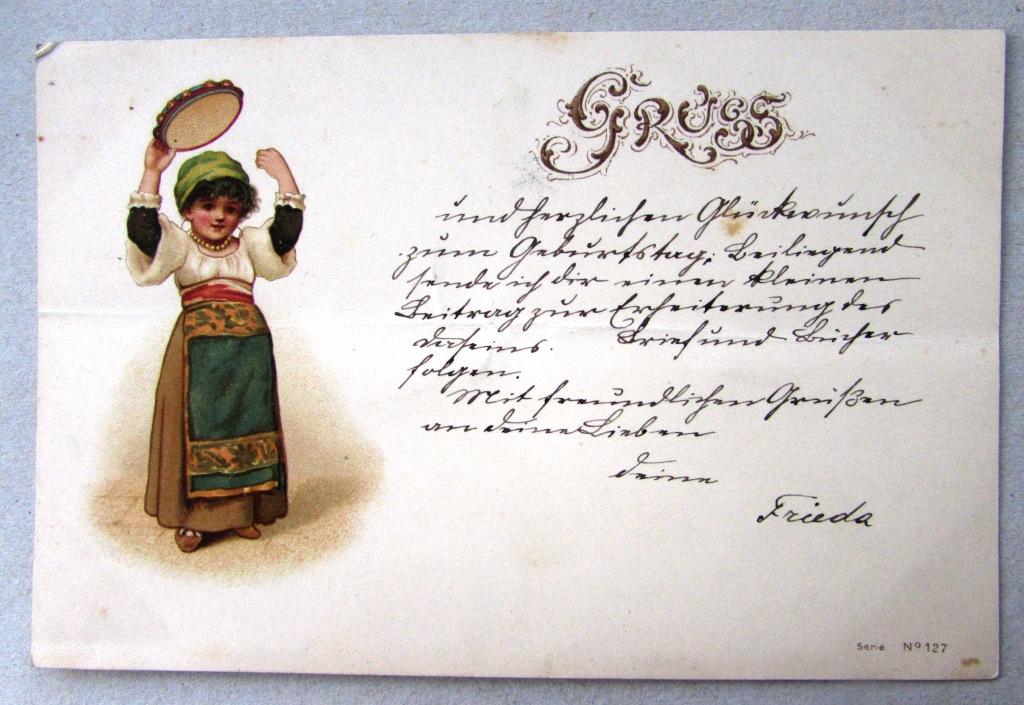 GRUSS
und herzlichen Glückwunsch
zum Geburtstag; Beiliegend
sende ich dir einen kleinen
Beitrag zur Erheiterung des
daseins. Brief und Bücher
folgen.
Mit freundlichen Grüßen
an deine Lieben
deine
Frieda
Serie Nº 127